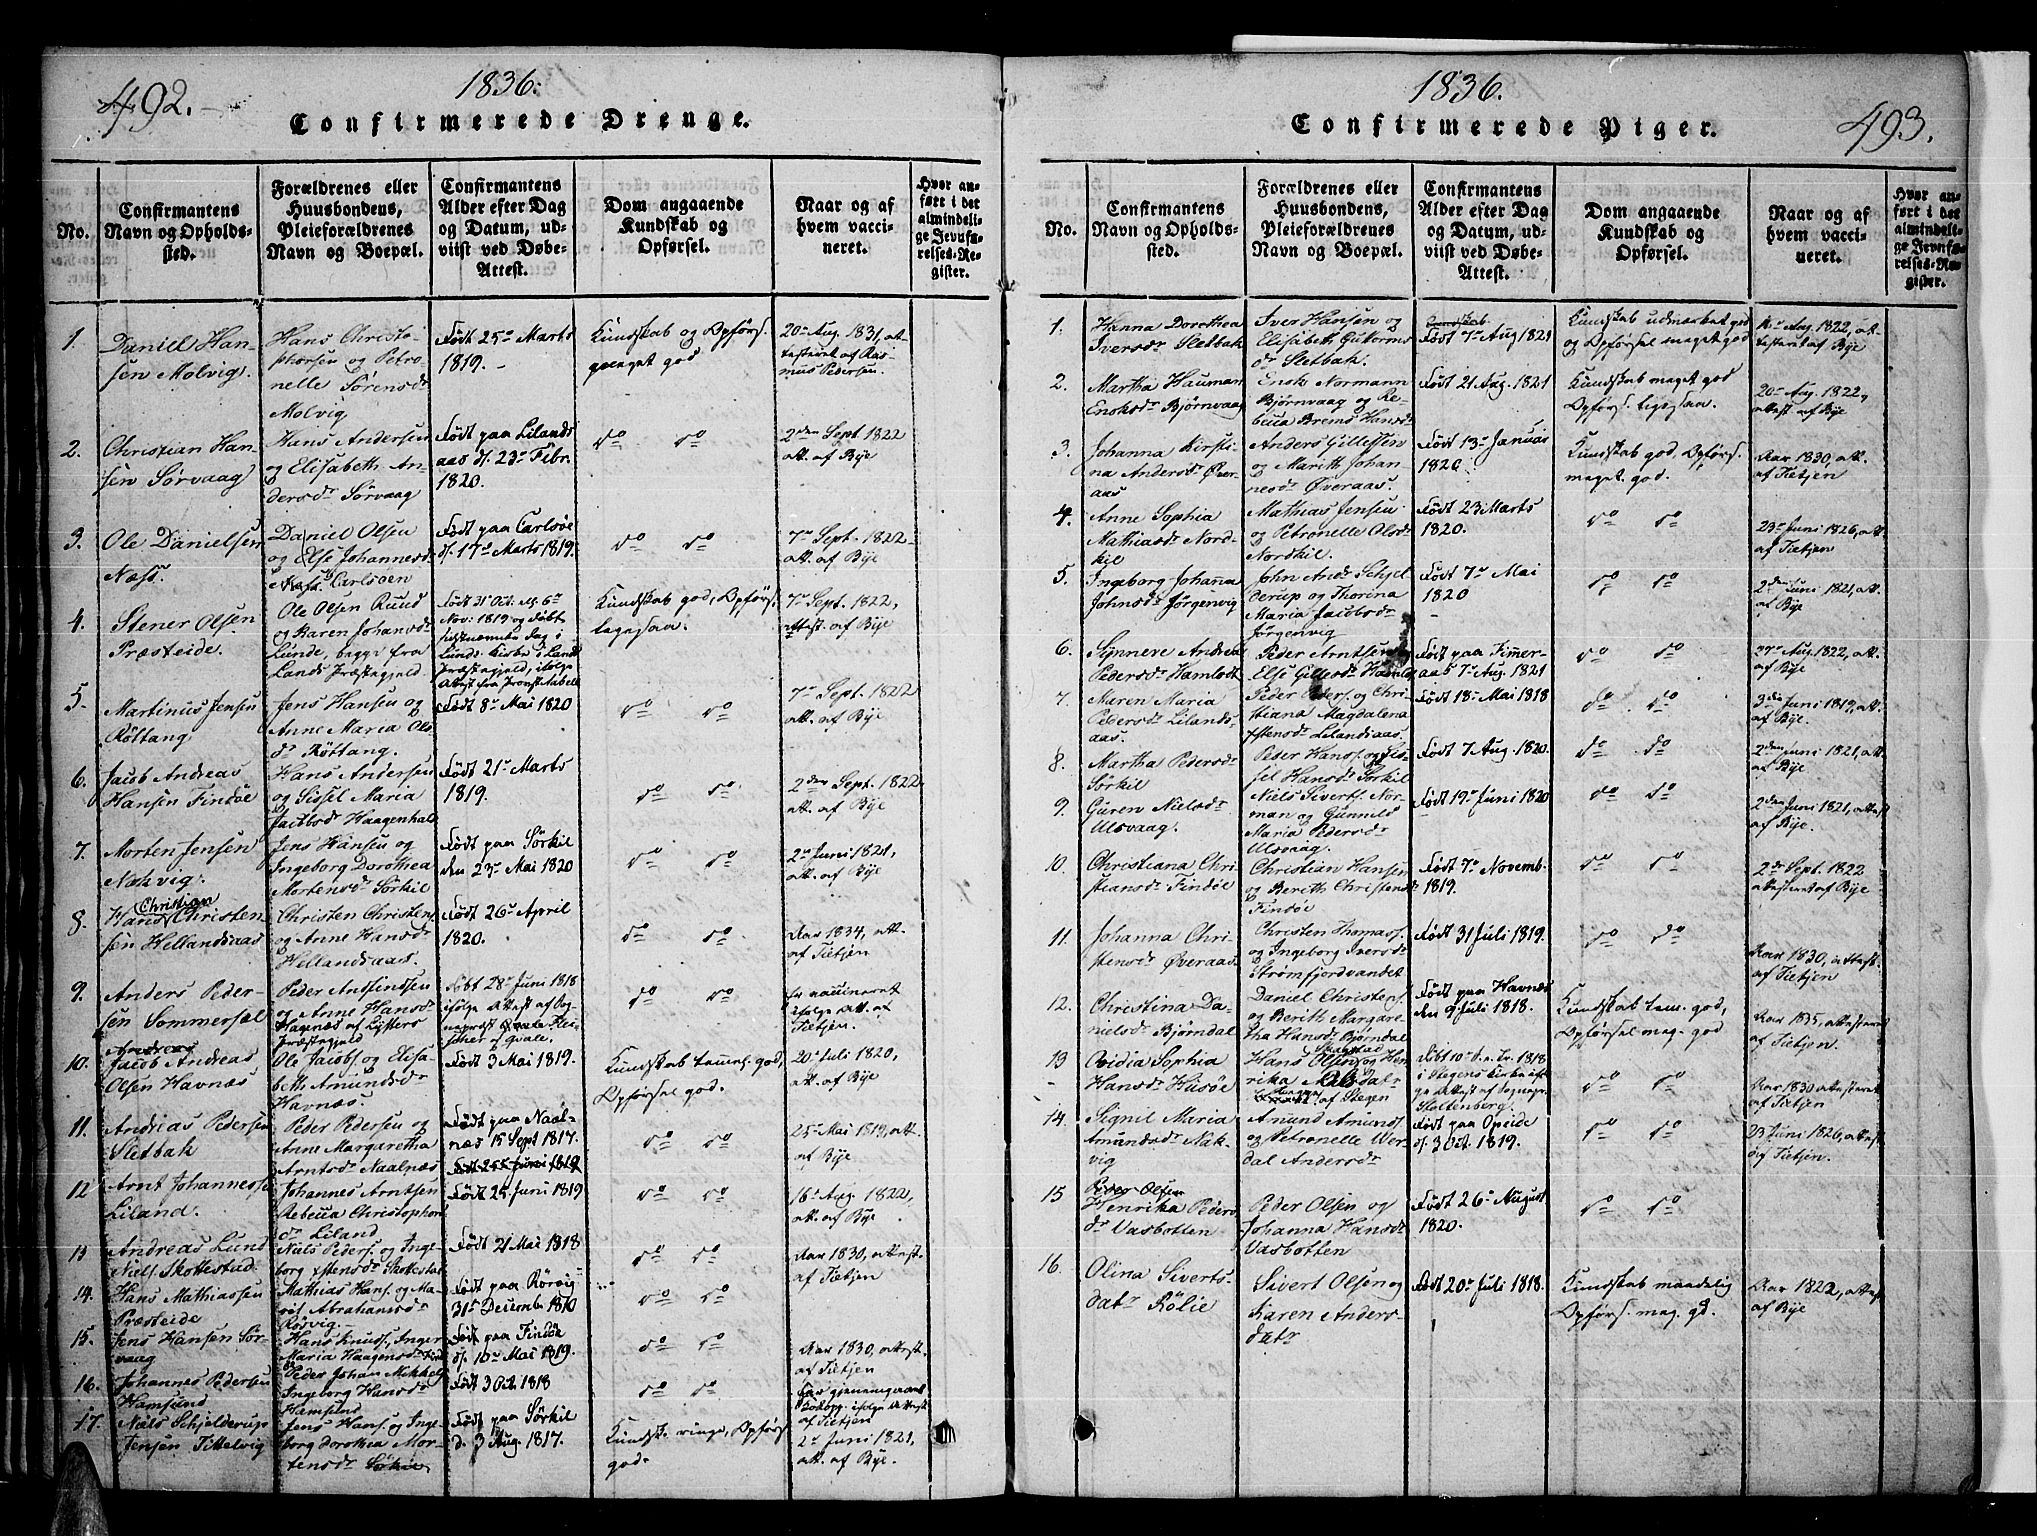 492.
1836.
Confirmerede Drenge.
No.
Confirmantens
Navn og Opholds-
sted.
Forældrenes eller
Huusbondens,
Pleieforældrenes
Navn og Boepæl.
Confirmantens
Alder efter Dag
og Datum, ud-
viist ved Døbe-
Attest.
Dom angaaende
Kundskab og
Opførsel.
Naar og af
hvem vacci-
neret.
Hvor an-
ført i det
almindeli-
ge Jevnfø-
relses-Re-
gister.
1.
Daniell Han-
sen Molvig.
Hans Christo-
phersen og Petro-
nelle Sörensdr
Molvig
Födt 25de Marts
1819.
Kundskab og Opförs.
meget god
20de Aug. 1831, at-
testeret af Ras-
mus Pedersen.
2.
Christian Han-
sen Sørvaag
Hans Andersen
og Elisabeth An-
dersdr Sørvaag
Födt paa Lilands-
aas d. 23de Febr.
1820.
do do
2den Sept. 1822
att. af Bye
3.
Ole Danielsen
Næss.
Daniel Olsen
og Else Johannesdr
Carlsöen
Födt paa Carlsöe
d. 17de Marts 1819.
do do
7de Sept. 1822
att. af Bye
4.
Stener Olsen
Præsteide.
Ole Olsen Ruud
og Karen Johansdr
Lunde, begge fra
Lands Præstegjeld
Födt 31 Oct. ell. 6te
Nov: 1819 og döbt
sidstnævnte Dag i
Lunds Kirke i Lands
Præstegjeld, ifölge
Attest fra Provst Aabell
Kundskab god, Opförs.
ligesaa.
7de Sept. 1822,
attest. af Bye
5.
Martinus Jensen
Röttang
Jens Hansen og
Anne Maria Ols-
dr Röttang.
Födt 8de Mai 1820
do do
7de Sept. 1822
att. af Bye
6.
Jacob Andreas
Hansen Findöe
Hans Andersen
og Sissel Maria
Jacobsdr Haagenhals
Födt 21de Marts
1819.
do do
2den Sept. 1822
att. af Bye
7.
Morten Jensen
Nækvig.
Jens Hansen og
Ingeborg Dorothea
Mortensdr Sörkil
Födt paa Sörkil
den 23de Mai 1820
do do
2de Juni 1821,
att. af Bye
8.
Christian
Hans Christen-
sen Hellandsaas
Christen Christens.
og Anne Hansdr
Hellandsaas.
Födt 26de April
1820.
do do
Aar 1834, att.
af Tietjen
9.
Anders Peder-
sen Sommersæl
Peder Andfindsen
og Anne Hansdr
Hagenæs af Lysters
Præstegjeld
Döbt 28de Juni 1818
ifölge Attest af Sog-
nepræst Qvale
do do
er vaccineret
ifölge Att. af
Tietjen.
10.
Andreas
Jacob Andreas
Olsen Havnæs
Ole Jacobs. og Elisa-
beth Amundsdr
Havnæs.
Födt 3 Mai 1819.
Kundskab temel. god,
Opförsel god.
20de Juli 1820,
att. af Bye
11.
Andreas Pedersen
Sletbak
Peder Pedersen og
Anne Margaretha
Arntsdr Naalnæs
Födt paa Naal-
næs 15 Sept 1817.
do do
25de Mai 1819, att.
af Bye
12
Arnt Johannessen
Liland.
Johannes Arntsen
Rebecca Christophers-
dr Liland
Födt 25de Juni 1819
Födt 25 Juni 1819
do do
16de Aug. 1822,
att. af Bye
13
Andreas Lund
Niels. Skottestad.
Niels Peders. og Inge-
borg Estensdr Skottestad
Födt 21 Mai 1818
do do
Aar 1830, attest.
af Tietjen
14.
Hans Mathiassen
Præsteide
Mathias Hans. og Ma-
rit Abrahamsdr
Rörvig.
Födt paa Rörvig
31te Decemb 1810
do do
15.
Jens Hansen Sör-
vaag
Hans Knuds., Inger
Maria Haagensdr
Födt paa Findöe
d. 10de Mai 1819.
do do
Aar 1830, attest.
af Tietjen
16.
Johannes Pedersen
Hamsund
Peder Johan Mikkels.
Ingeborg Hansdr
Hamsund
Födt 3 Oct. 1818
do do
har gjennemgaaet
Kokopp. ifölge Attest
af Tietjen
17.
Niels Schjelderup
Jensen Tittelvig
Jens Hans. og Inge-
borg Dorothea Mor-
tensdr Sörkil
Födt paa Sörkil
d. 3 Aug. 1817.
Kundsk. ringe, Opförs.
god.
2de Juni 1821,
att. af Bye.
1836.
493.
Confirmerede Piger.
No.
Confirmantens
Navn og Opholds-
sted.
Forældrenes eller
Huusbondens,
Pleieforældrenes
Navn og Boepæl.
Confirmantens
Alder efter Dag
og Datum, ud-
viist ved Døbe-
Attest.
Dom angaaende
Kundskab og
Opførsel.
Naar og af
hvem vacci-
neret.
Hvor an-
ført i det
almindeli-
ge Jevnfø-
relses-Re-
gister.
1.
Hanna Dorothea
Iversdr Sletbak
Iver Hansen og
Elisabeth Guttorms-
dr Sletbak
Kundskab
Födt 7de Aug 1821
Kundskab udmærket god
og Opförsel meget god
16de Aug. 1822, at-
testeret af Bye
2.
Martha Hauman
Enoksdr Björnvaag
Enok Normann
Björnvaag og Re-
becca Brems Hansdr
Födt 21 Aug. 1821
Kundskab meget god
Opförs. ligesaa.
20de Aug. 1822,
attest af Bye
3.
Johanna Kirsti-
na Andersdr Över-
aas
Anders Gillessen
og Marith Johan-
nesdr Överaas.
Födt 13de Januar
1820
Kundskab god, Opförs.
meget god.
Aar 1830, att.
af Tietjen
4.
Anne Sophia
Mathiasdr Nord-
kil
Mathias Jensen
og Petronelle Olsdr
Nordkil.
Födt 23 Marts
1820.
do do
23de Juni 1826, att.
af Tietjen
5.
Ingeborg Johanna
Johnsdr Jörgenvig
John Andr. Schjel-
derup og Thorina
Maria Jacobsdr
Jörgenvig
Födt 7de Mai
1820
do do
2den Juni 1821, att.
af Bye
6.
Synneve Andrea
Pedersdr Hamlott
Peder Arntsen og
Else Gillesdr Hamlot
Födt paa Finner-
aas 7de Aug. 1821
do do
27de Aug. 1822, att.
af Bye
7.
Maren Maria
Pedersdr Lilands-
aas.
Peder Peders. og Chri-
stiana Magdalena
Estensdr Lilandsaas.
Födt 18de Mai 1818
do do
3die Juni 1819, att.
af Bye.
8.
Martha Pedersdr
Sörkil
Peder Hans. og Sis-
sel Hansdr Sörkil
Födt 7 Aug. 1820.
do do
2den Juni 1821, att.
af Bye
9.
Guren Nielsdr
Ulsvaag.
Niels Siverts. Nor-
man og Gunnild
Maria Pedersdr
Ulsvaag.
Födt 19de Juni 1820
do do
2den Juni 1821, attest
af Bye.
10.
Christiana Chri-
stiansdr Findöe
Christian Hansen
og Berith Christensdr
Findöe
Födt 7de Novemb.
1819.
do do
2de Sept. 1822
attesteret af Bye
11.
Johanna Chri-
stensdr Överaas
Christen Thomass.
og Ingeborg Iversdr
Strömfjordvandet
Födt 31 Juli 1819.
do do
Aar 1830, attest.
af Tietjen
12.
Christina Da-
nielsdr Björndal
Daniel Christens.
og Berith Margare-
tha Hansdr Björndal
Födt paa Havnæs
den 9 Juli 1818.
Kundskab tem. god,
Opförsel meg. god
Aar 1835, attesteret
af Tietjen.
13
Ovidia Sophia
Hansdr Husöe
Hans Olsen og Hen-
rika
af Stegen
Döbt 10de S. e. Tr. 1818
i Stegens Kirke ifl-
ge Attest af Sognepr.
Stoltenberg.
do do
Aar 1830 attesteret
af Tietjen
14.
Signil Maria
Amundsdr Næk-
vig
Amund Amunds.
og Petronelle Wer-
dal Andersdr
Födt paa Opeide
d. 3 Oct. 1819.
do do
23 Juni 1826, attest
af Tietjen.
15
Peder Olsen
Henrika Peders-
dr Vasbotten
Peder Olsen og
Johanna Hansdr
Vasbotten
Födt 26de August
1820.
do do
16.
Olina Siverts-
datr Rölie
Sivert Olsen og
Karen Anders-
datr
Födt 20de Juli 1818.
Kundskab maadelig
Opförs. meg. gd.
Aar 1822, attest.
af Bye